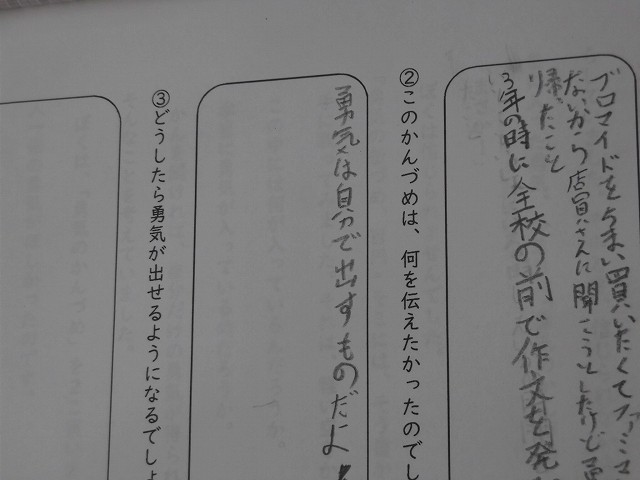 ブロマイドをうまい買いたくてファミマ
ないから店員さんに聞こうとしたけど
帰ったこと
3年の時に全校の前で作文を発
②このかんづめは、何を伝えたかったのでし
勇気は自分で出すものだよ!
③どうしたら勇気が出せるようになるでしょ